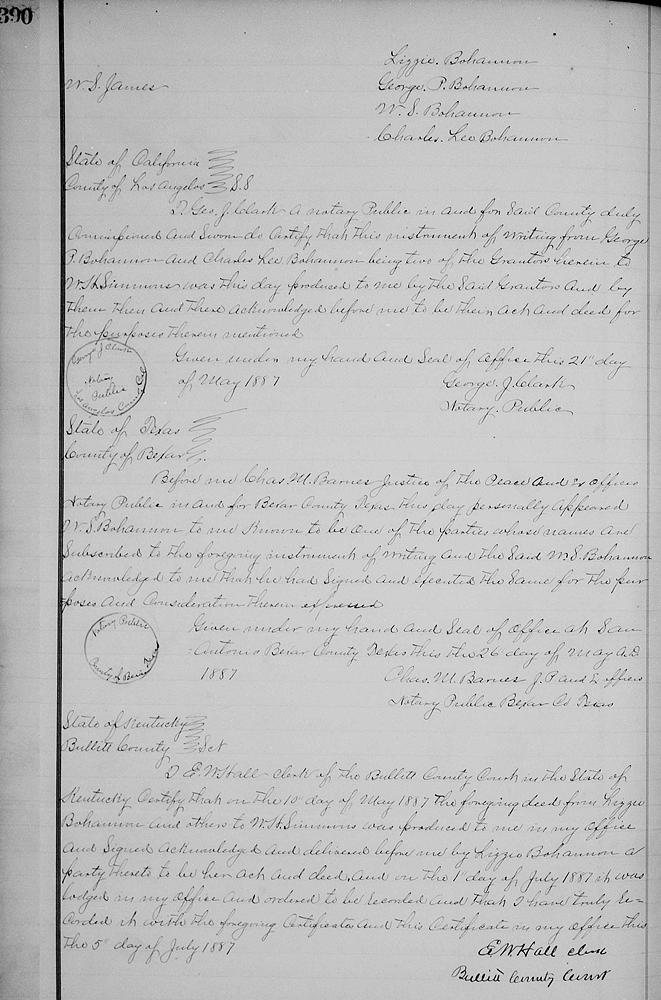 390
Lizzie. Bohannon
W. S. James
George. P. Bohannon
W. S. Bohannon
Charles. Leo Bohannon
State of California
County of Los Angelos S.S
I Geo. J. Clark a notary Public in and for Said County duly
Commissioned and Sworn do Certify that this instrument of writing from George
P. Bohannon and Charles Leo Bohannon being two of the Grantors herein to
W. H. Simmons was this day produced to me by the Said Grantors and by
them then and there acknowledged before me to be their act and deed for
the purposes therein mentioned
Given under my hand and Seal of office this 21st day
of May 1887
George. J. Clark
Notary. Public
George J Clark
Notary
Public
Los Angelos County Cal
State of Texas
County of Bexar
Before me Chas. M. Barnes Justice of the Peace and Ex officio
Notary Public in and for Bexar County Texas this day personally appeared
W. S. Bohannon to me Known to be one of the parties whose names are
Subscribed to the foregoing instrument of writing and the Said W. S. Bohannon
acknowledged to me that he had Signed and executed the Same for the pur
poses and Consideration therein expressed
Given under my hand and Seal of office at San
Antonio Bexar County Texas this the 26 day of May A.D
1887
Chas. M. Barnes J. P. and Ex officio
Notary Public Bexar Co Texas
Notary Public
County of Bexar Texas
State of Kentucky
Bullitt County Sct
I E. W. Hall clerk of the Bullitt County Court in the State of
Kentucky Certify that on the 10" day of May 1887 the foregoing deed from Lizzie
Bohannon and others to W. H. Simmons was produced to me in my office
and Signed acknowledged and delivered before me by Lizzie Bohannon a
party thereto to be her act and deed, and on the 1st day of July 1887 it was
lodged in my office and ordered to be recorded and that I have truly re-
corded it with the foregoing Certificates and this Certificate in my office this
the 5" day of July 1887
E. W. Hall clerk
Bullitt County Court